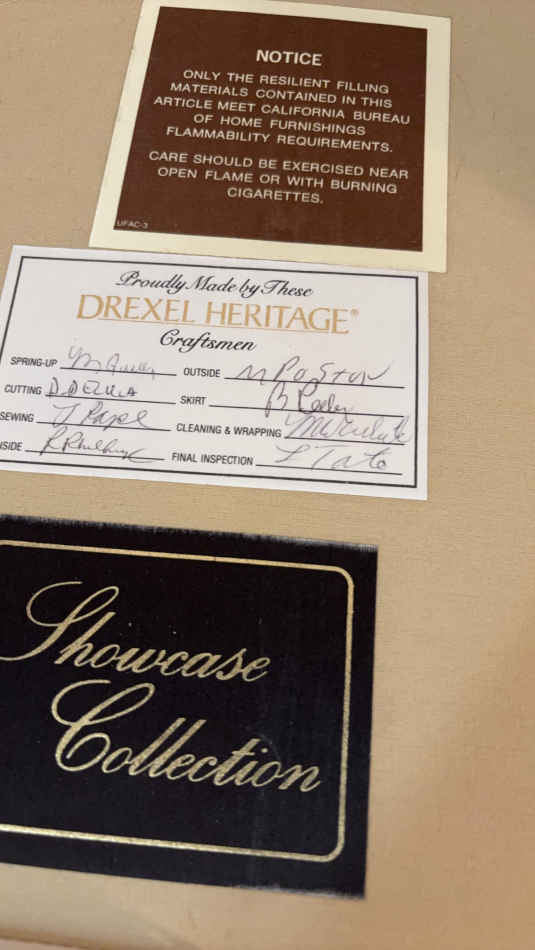 NOTICE
ONLY THE RESILIENT FILLING
MATERIALS CONTAINED IN THIS
ARTICLE MEET CALIFORNIA BUREAU
OF HOME FURNISHINGS
FLAMMABILITY REQUIREMENTS.
CARE SHOULD BE EXERCISED NEAR
OPEN FLAME OR WITH BURNING
CIGARETTES.
UFAC-3
Proudly Made by These
DREXEL HERITAGE®
Craftsmen
SPRING-UP
OUTSIDE M Poston
CUTTING
SKIRT B
SEWING T Pape
CLEANING & WRAPPING
NSIDE
FINAL INSPECTION L Tate
Showcase
Collection